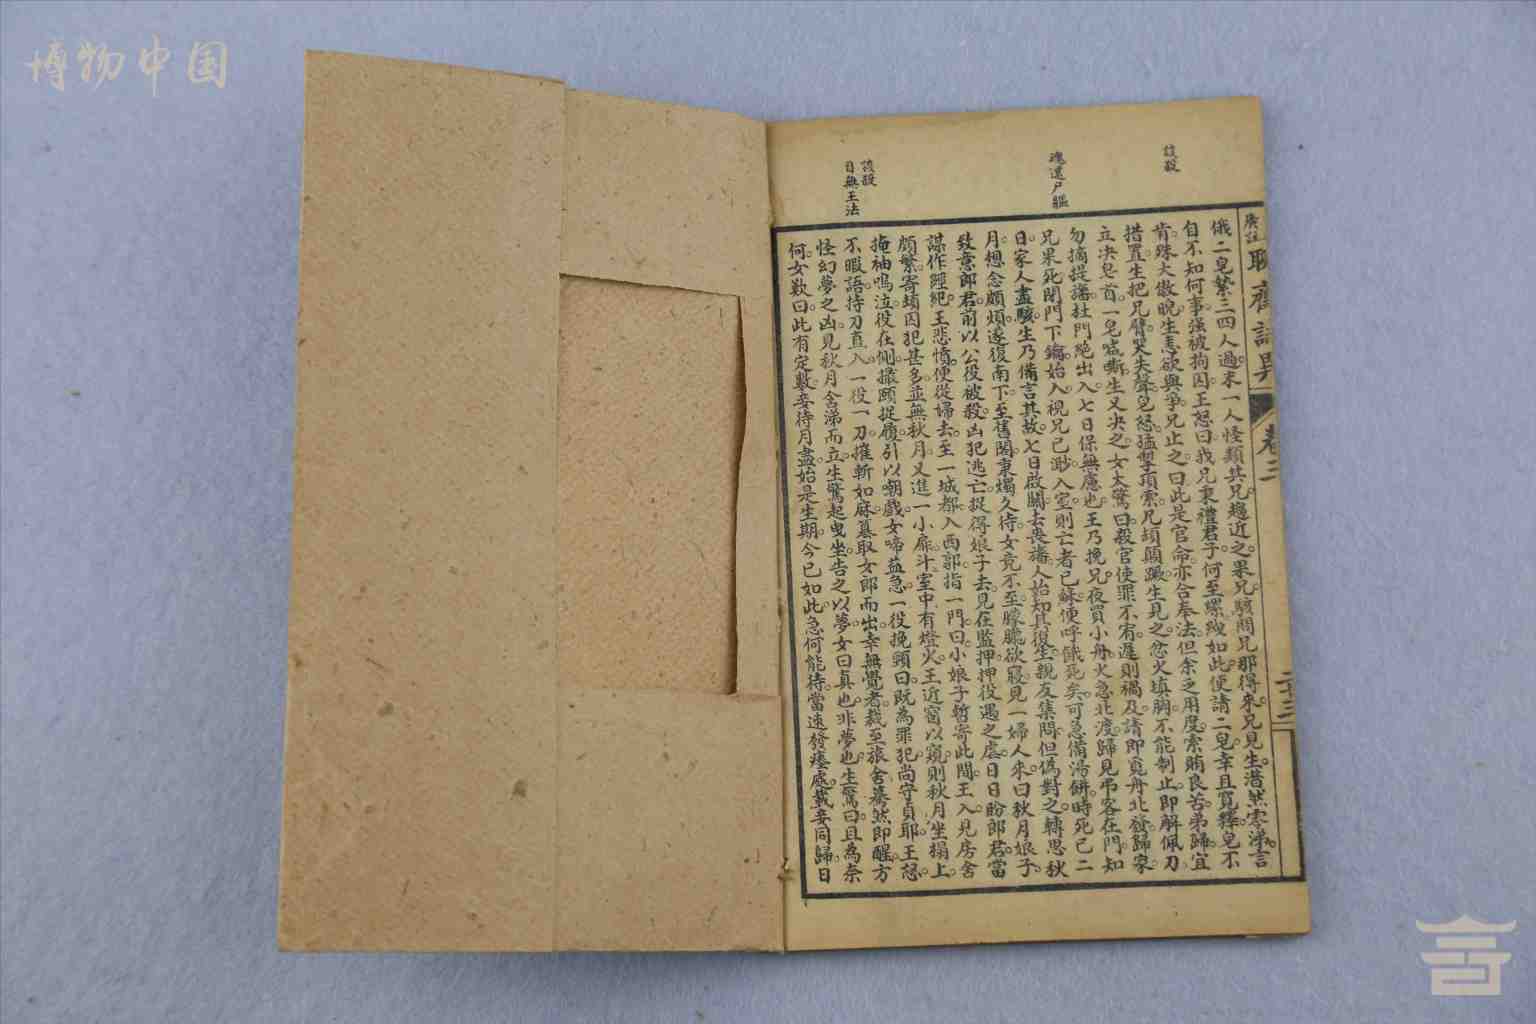 博物中国
該殺
魂還尸軀
該殺
目無王法
廣註聊齋誌異 卷三 二十三
俄二皂縶三四人過末一人怪類其兄趨近之果兄駭問兄那得來兄見生潸然零涕言
自不知何事強被拘囚王怒曰我兄秉禮君子何至縲絏如此便請二皂幸且寬釋皂不
肯殊大傲睨生恚欲與爭兄止之曰此是官命亦合奉法但余乏用度索賄良苦弟歸宜
措置生把兄臂哭失聲皂怒猛掣項索兄頓顛蹶生見之忿火填胸不能制止即解佩刀
立決皂首一皂喊嘶生又決之女大驚曰殺官使罪不宥遲則禍及請即覓舟北發歸家
勿摘提旛杜門絕出入七日保無慮也王乃挽兄夜買小舟火急北渡歸見弔客在門知
兄果死閉門下鑰始入視兄已渺入室則亡者已蘇便呼餓死矣可急備湯餅時死已二
日家人盡駭生乃備言其故七日啟關去喪旛人始知其復生親友集問但偽對之轉思秋
月想念頗煩遂復南下至舊閣秉燭久待女竟不至朦朧欲寢見一婦人來曰秋月娘子
致意郎君前以公役被殺凶犯逃亡捉得娘子去見在監押押役遇之虐日日盼郎君當
謀作經紀王悲憤便從婦去至一城都入西郭指一門曰小娘子暫寄此間王入見房舍
頗繁寄頓囚犯甚多並無秋月又進一小扉斗室中有燈火王近窗以窺則秋月坐榻上
掩袖嗚泣役在側撮頤捉履引以嘲戲女啼益急一役挽頸曰既為罪犯尚守貞耶王怒
不暇語持刀直入一役一刀摧斬如麻篡取女郎而出幸無覺者裁至旅舍驀然即醒方
怪幻夢之凶見秋月含涕而立生驚起曳坐告之以夢女曰真也非夢也生驚曰且為奈
何女歎曰此有定數妾待月盡始是生期今已如此急何能待當速發瘞處載妾同歸日